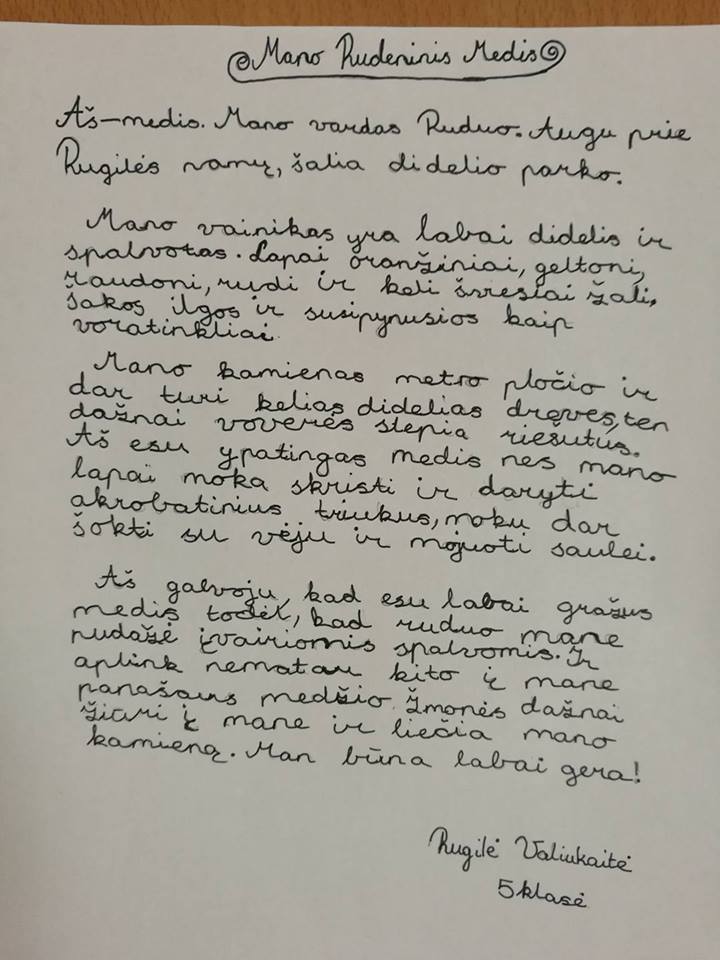 Mano Rudeninis Medis
Aš-medis. Mano vardas Ruduo. Augu prie
Rugilės namų, šalia didelio parko.
Mano vainikas yra labai didelis ir
spalvotas. Lapai oranžiniai, geltoni,
raudoni, rudi ir keli šviesiai žali,
šakos ilgos ir susipynusios kaip
voratinkliai.
Mano kamienas metro pločio ir
dar turi kelias didelias dręves, ten
dažnai voverės slepia riešutus.
Aš esu ypatingas medis nes mano
lapai moka skristi ir daryti
akrobatinius triukus, moku dar
šokti su vėju ir mojuoti saulei.
Aš galvoju, kad esu labai gražus
medis todėl, kad ruduo mane
nudažė įvairiomis spalvomis. Ir
aplink nematau kito į mane
panašaus medžio. Žmonės dažnai
žiūri į mane ir liečia mano
kamieną. Man būna labai gera!
Rugilė Valiukaitė
5 klasė